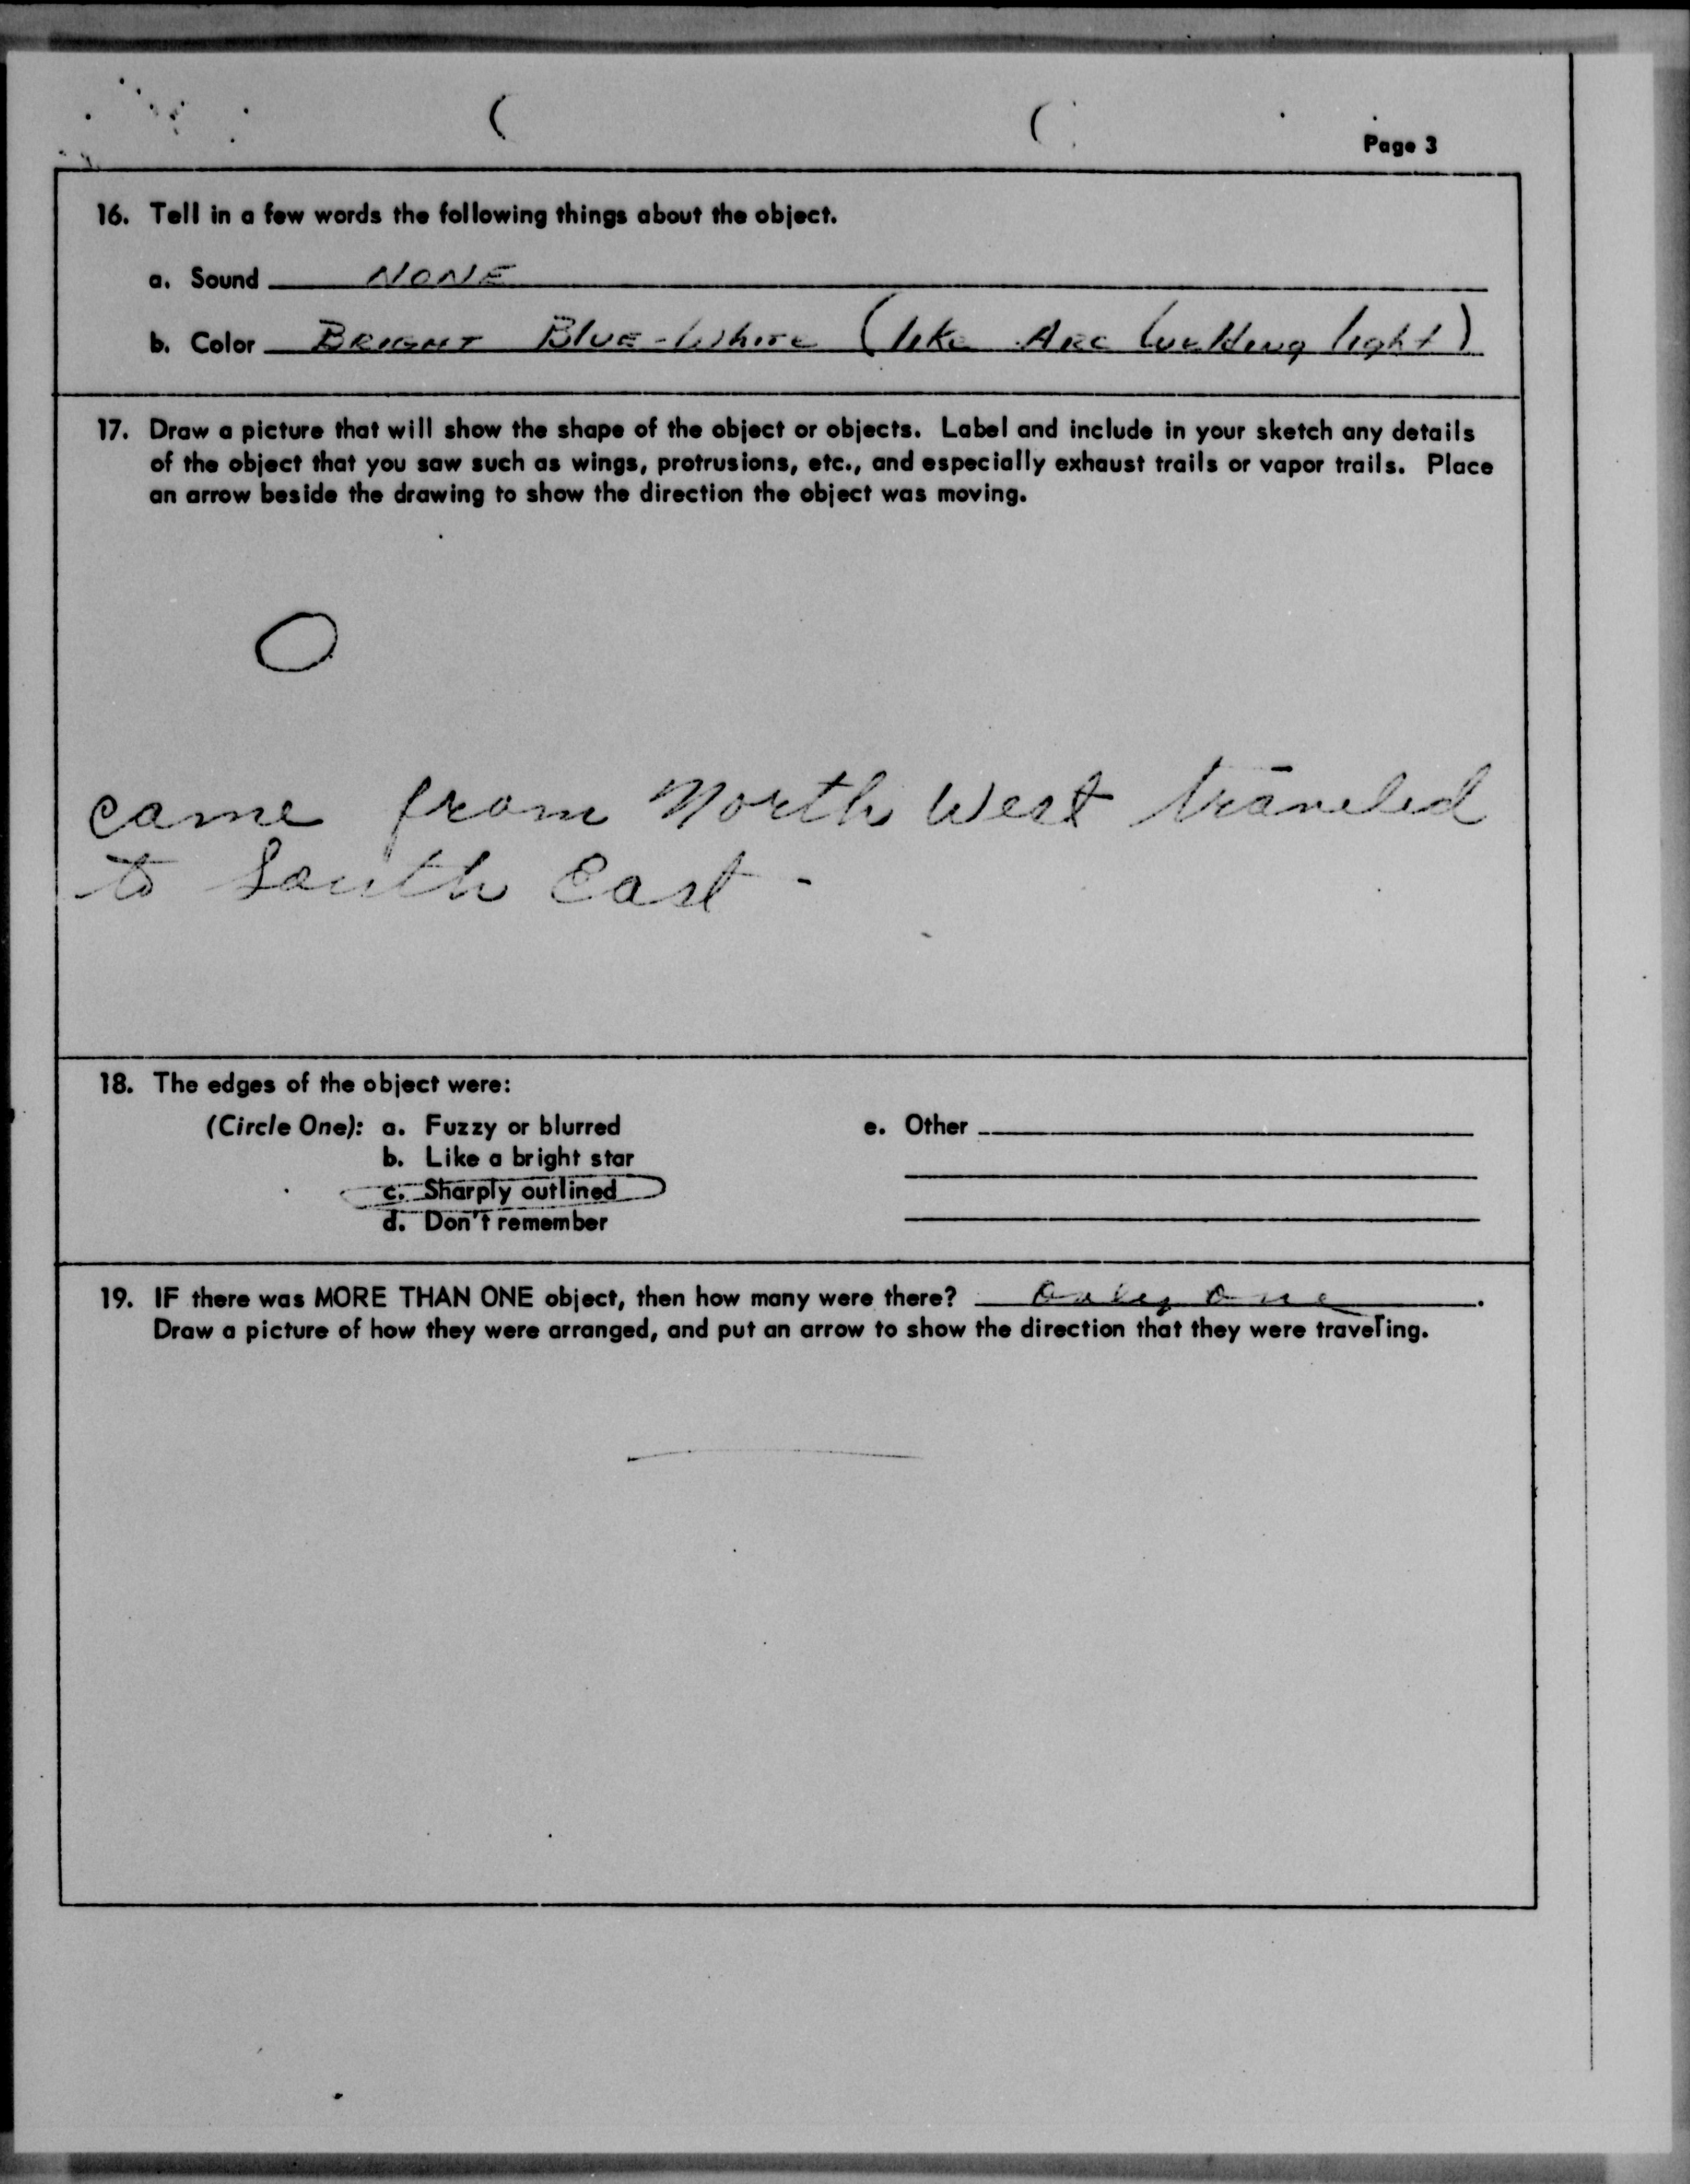 Page 3
16. Tell in a few words the following things about the object.
a. Sound NONE
b. Color BRIGHT BLUE-White (like ARC Welding light)
17. Draw a picture that will show the shape of the object or objects. Label and include in your sketch any details
of the object that you saw such as wings, protrusions, etc., and especially exhaust trails or vapor trails. Place
an arrow beside the drawing to show the direction the object was moving.
came from North West traveled
to South East -
18. The edges of the object were:
(Circle One): a. Fuzzy or blurred e. Other
b. Like a bright star
c. Sharply outlined
d. Don't remember
19. IF there was MORE THAN ONE object, then how many were there? Only one.
Draw a picture of how they were arranged, and put an arrow to show the direction that they were traveling.